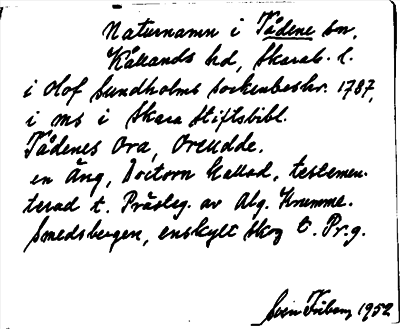 Naturnamn i Tådene sn,
Kållands hd, Skarab. l.
i Olof Sundholms sockenbeskr. 1787,
i ms i Skara Stiftsbibl.
Tådenes Ora, Oreudde.
en Äng, Doctorn kallad, testemen-
terad t. Prästg. av Alg. Krumme.
Smedsbergen, enskylt skog t. Pr.g.
Sven Friberg 1952